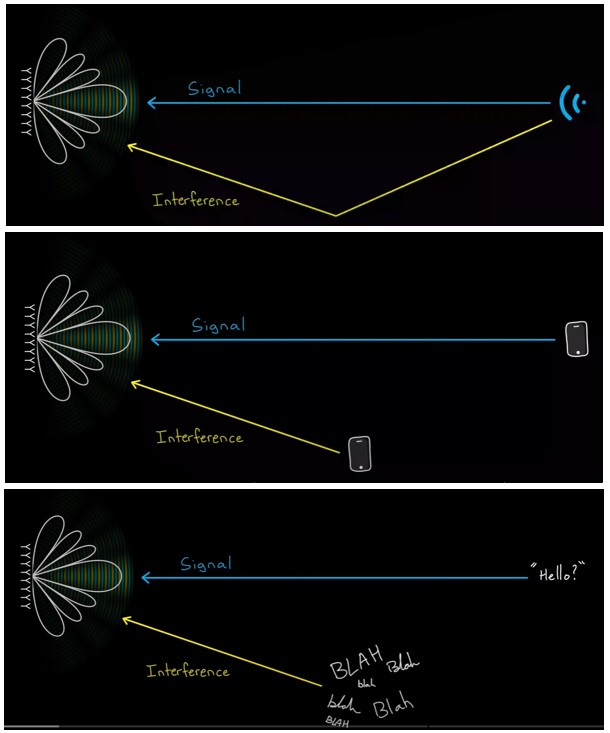 Signal
Interference
Signal
Interference
Signal
"Hello?"
Interference
BLAH Blah
blah
blah Blah
BLAH